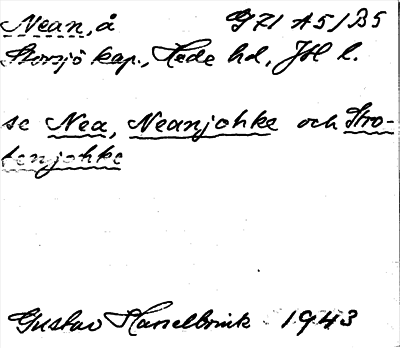 Nean, å G71 A5/B5
Storsjö kap., Hede hd, JH l.
se Nea, Neanjohke och Stro-
tenjohke
Gustav Hasselbrink 1943